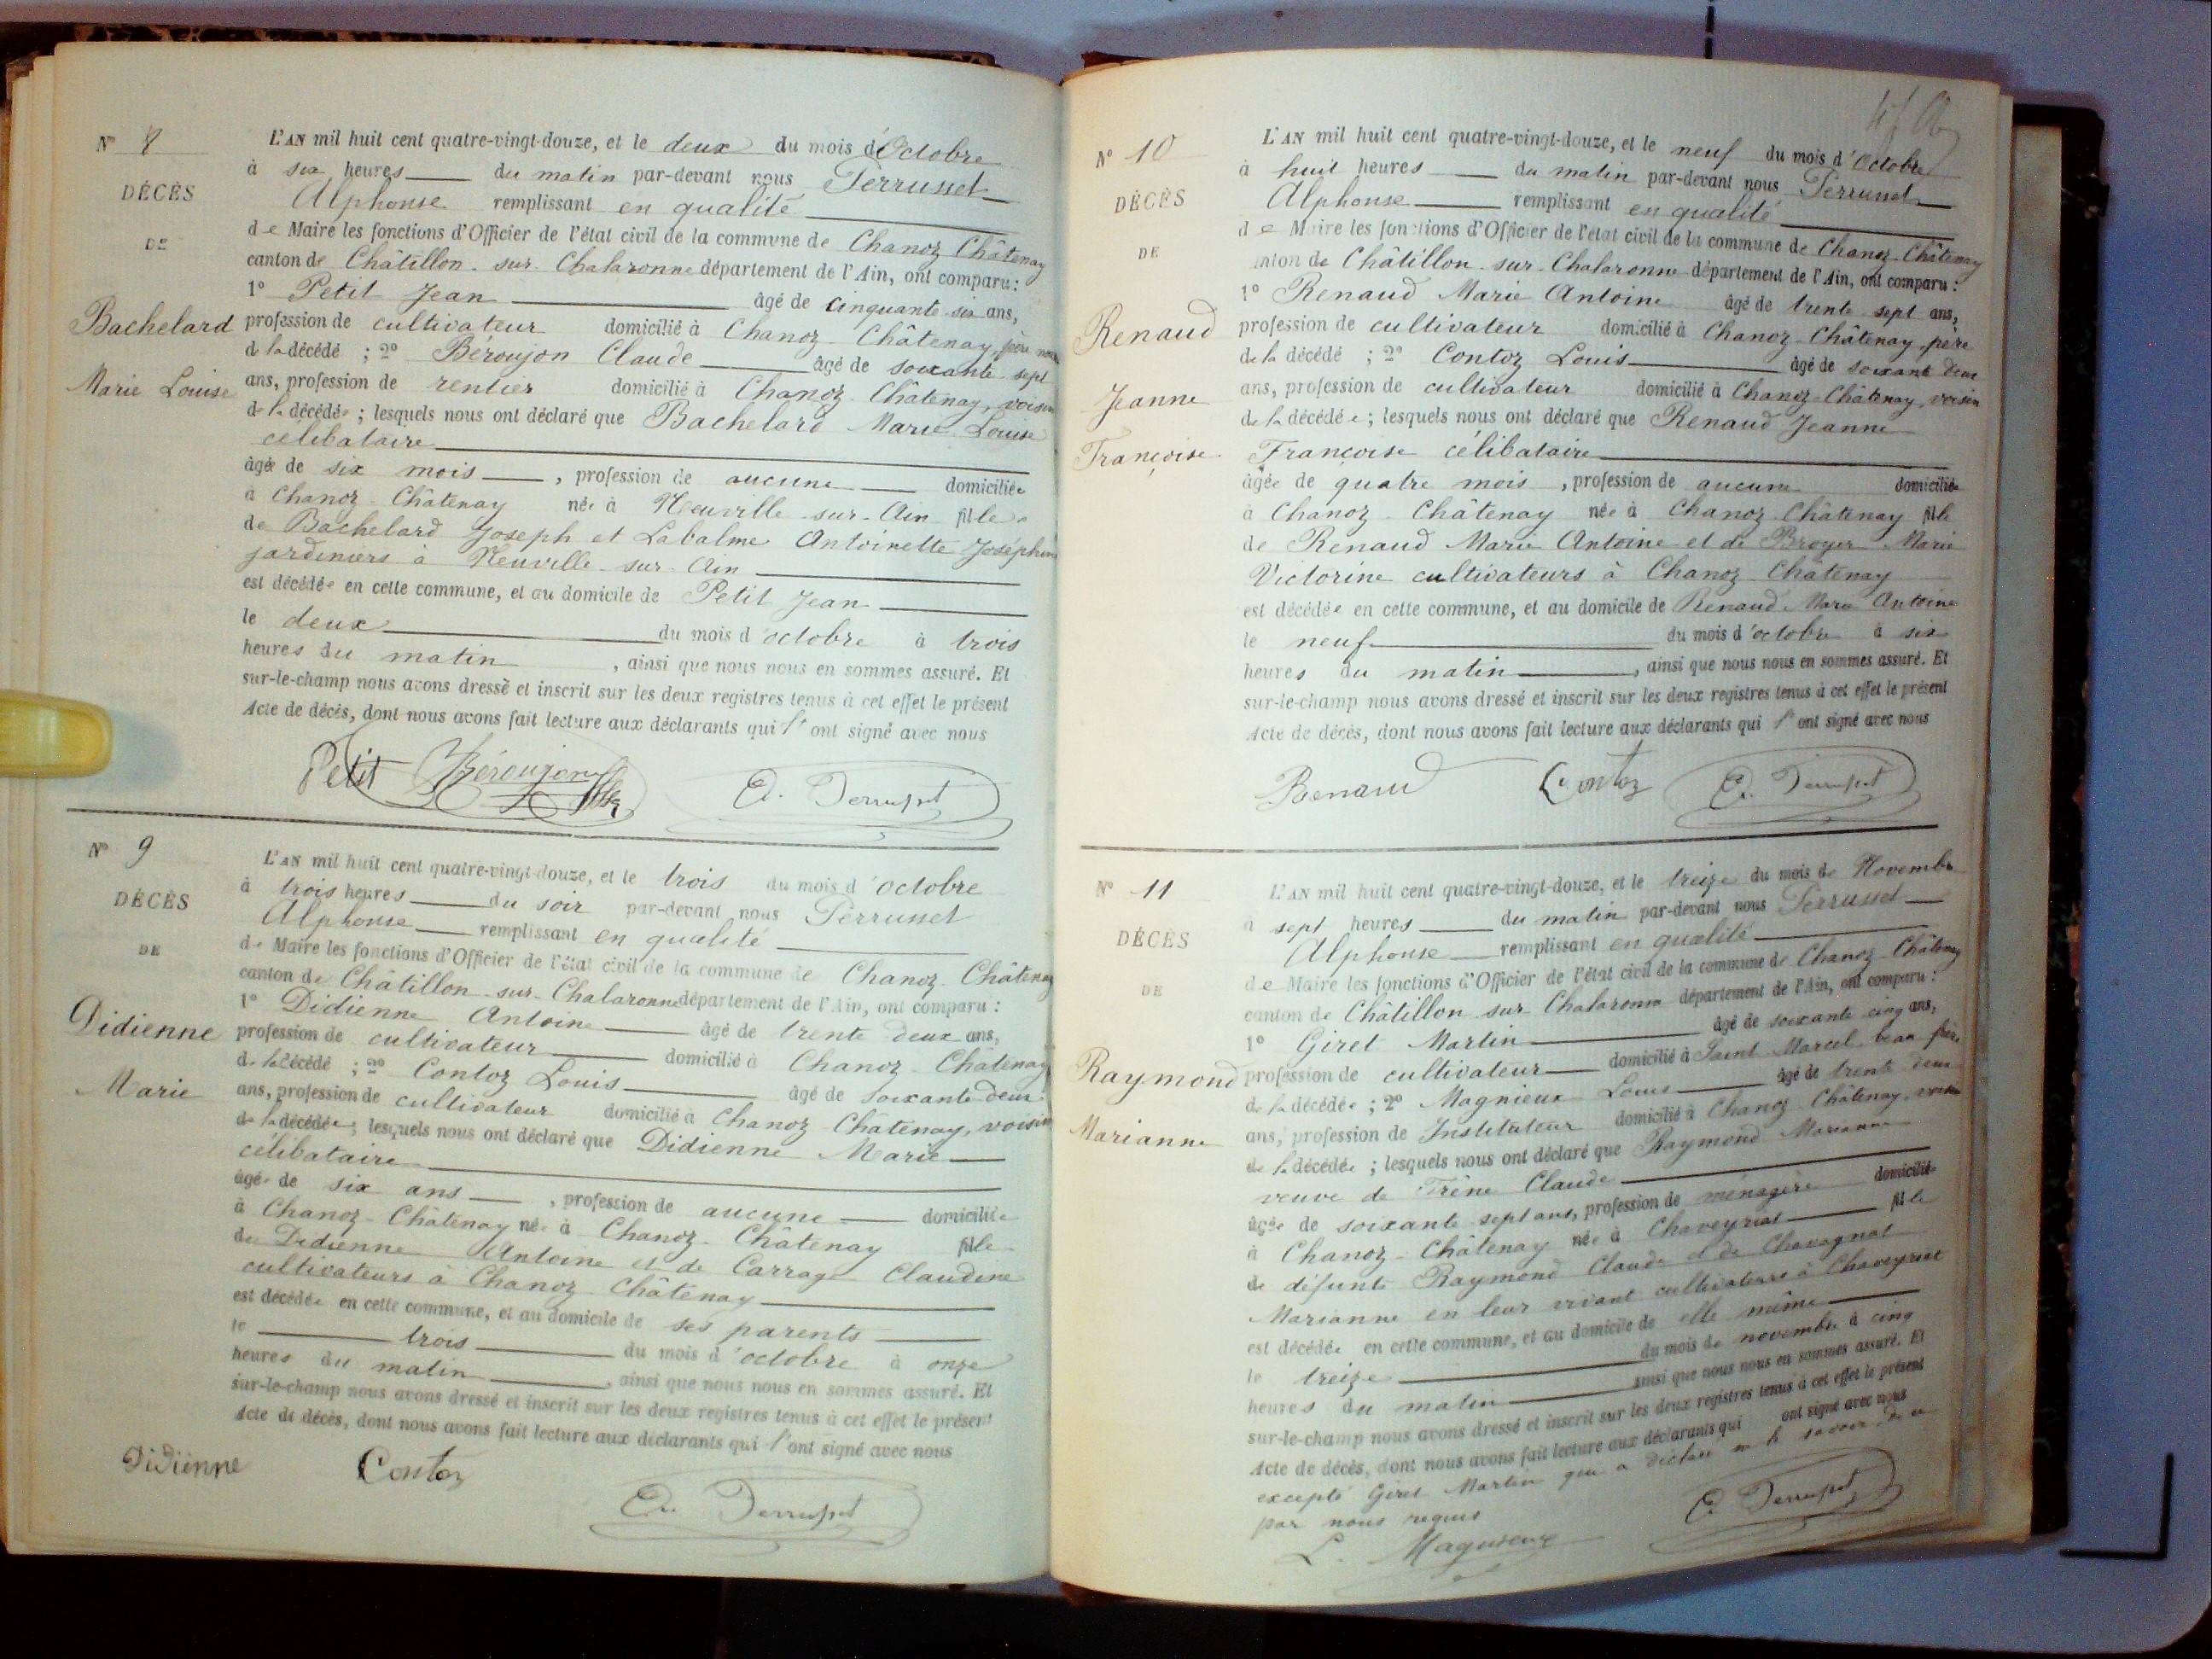 N° 8
DÉCÈS
DE
Bachelard
Marie Louise
L'AN mil huit cent quatre-vingt-douze, et le deux du mois d'Octobre
à six heures du matin par-devant nous Perrusset
Alphonse remplissant en qualité
de Maire les fonctions d'Officier de l'état civil de la commune de Chanoz Châtenay
canton de Châtillon-sur-Chalaronne département de l'Ain, ont comparu :
1° Petit Jean âgé de cinquante-six ans,
profession de cultivateur domicilié à Chanoz-Châtenay, père
de la décédé ; 2° Béroujon Claude âgé de soixante-sept
ans, profession de rentier domicilié à Chanoz-Châtenay, voisin
de la décédée ; lesquels nous ont déclaré que Bachelard Marie Louise
célibataire
âgée de six mois, profession de aucune domiciliée
à Chanoz-Châtenay née à Neuville-sur-Ain fille
de Bachelard Joseph et Labalme Antoinette Joséphine
jardiniers à Neuville-sur-Ain
est décédée en cette commune, et au domicile de Petit Jean
le deux du mois d'octobre à trois
heures du matin, ainsi que nous nous en sommes assuré. Et
sur-le-champ nous avons dressé et inscrit sur les deux registres tenus à cet effet le présent
Acte de décès, dont nous avons fait lecture aux déclarants qui l'ont signé avec nous
Petit Béroujon A. Perrusset
N° 9
DÉCÈS
DE
Didienne
Marie
L'AN mil huit cent quatre-vingt-douze, et le trois du mois d'octobre
à trois heures du soir par-devant nous Perrusset
Alphonse remplissant en qualité
de Maire les fonctions d'Officier de l'état civil de la commune de Chanoz-Châtenay
canton de Châtillon-sur-Chalaronne département de l'Ain, ont comparu :
1° Didienne Antoine âgé de trente deux ans,
profession de cultivateur domicilié à Chanoz-Châtenay
de la décédé ; 2° Contoz Louis âgé de soixante-deux
ans, profession de cultivateur domicilié à Chanoz-Châtenay, voisin
de la décédée ; lesquels nous ont déclaré que Didienne Marie
célibataire
âgée de six ans, profession de aucune domiciliée
à Chanoz-Châtenay née à Chanoz-Châtenay fille
de Didienne Antoine et de Carrage Claudine
cultivateurs à Chanoz Châtenay
est décédée en cette commune, et au domicile de ses parents
le trois du mois d'octobre à onze
heures du matin, ainsi que nous nous en sommes assuré. Et
sur-le-champ nous avons dressé et inscrit sur les deux registres tenus à cet effet le présent
Acte de décès, dont nous avons fait lecture aux déclarants qui l'ont signé avec nous
Didienne Contoz A. Perrusset
N° 10
DÉCÈS
DE
Renaud
Jeanne
Françoise
L'AN mil huit cent quatre-vingt-douze, et le neuf du mois d'Octobre
à huit heures du matin par-devant nous Perrusset
Alphonse remplissant en qualité
de Maire les fonctions d'Officier de l'état civil de la commune de Chanoz-Châtenay
canton de Châtillon-sur-Chalaronne département de l'Ain, ont comparu :
1° Renaud Marie Antoine âgé de trente sept ans,
profession de cultivateur domicilié à Chanoz-Châtenay père
de la décédé ; 2° Contoz Louis âgé de soixante deux
ans, profession de cultivateur domicilié à Chanoz-Châtenay, voisin
de la décédée ; lesquels nous ont déclaré que Renaud Jeanne
Françoise célibataire
âgée de quatre mois, profession de aucune domiciliée
à Chanoz-Châtenay née à Chanoz-Châtenay fille
de Renaud Marie Antoine et de Broyer Marie
Victorine cultivateurs à Chanoz Châtenay
est décédée en cette commune, et au domicile de Renaud Marie Antoine
le neuf du mois d'octobre à six
heures du matin, ainsi que nous nous en sommes assuré. Et
sur-le-champ nous avons dressé et inscrit sur les deux registres tenus à cet effet le présent
Acte de décès, dont nous avons fait lecture aux déclarants qui l'ont signé avec nous
Renaud Contoz A. Perrusset
N° 11
DÉCÈS
DE
Raymond
Marianne
L'AN mil huit cent quatre-vingt-douze, et le treize du mois de Novembre
à sept heures du matin par-devant nous Perrusset
Alphonse remplissant en qualité
de Maire les fonctions d'Officier de l'état civil de la commune de Chanoz-Châtenay
canton de Châtillon-sur-Chalaronne département de l'Ain, ont comparu :
1° Giret Martin âgé de soixante cinq ans,
profession de cultivateur domicilié à Saint Marcel beau frère
de la décédée ; 2° Magnieux Louis âgé de trente deux
ans, profession de Instituteur domicilié à Chanoz-Châtenay, voisin
de la décédée ; lesquels nous ont déclaré que Raymond Marianne
veuve de Trêne Claude
âgée de soixante sept ans, profession de ménagère domiciliée
à Chanoz-Châtenay née à Chaveyriat fille
de défunts Raymond Claude et de Chavagnat
Marianne en leur vivant cultivateurs à Chaveyriat
est décédée en cette commune, et au domicile de elle même
le treize du mois de novembre à cinq
heures du matin ainsi que nous nous en sommes assuré. Et
sur-le-champ nous avons dressé et inscrit sur les deux registres tenus à cet effet le présent
Acte de décès, dont nous avons fait lecture aux déclarants qui ont signé avec nous
excepté Giret Martin qui a déclaré ne le savoir de ce
par nous requis
L. Magnieux A. Perrusset